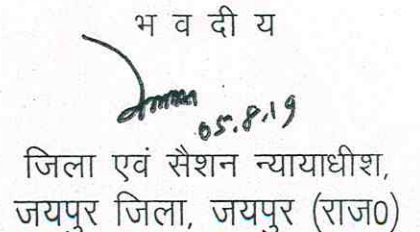 भ व दी य
05.8.19
जिला एवं सैशन न्यायाधीश,
जयपुर जिला, जयपुर (राज0)